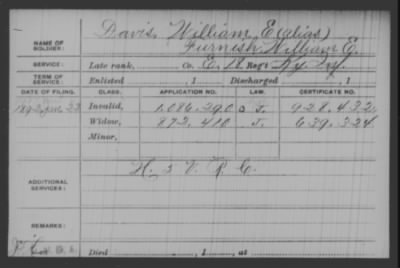 Davis, William E (alias)
NAME OF SOLDIER: Furnish William E.
SERVICE: Late rank, Co. E, 18, Reg't Ky Inf.
TERM OF SERVICE: Enlisted , 1 Discharged , 1
DATE OF FILING. CLASS. APPLICATION NO. LAW. CERTIFICATE NO.
189 23 Invalid, 1.086.290 J. 928.432
Widow, 872.410 J. 639.324
Minor,
ADDITIONAL SERVICES: H. & V. R. C.
REMARKS:
Died , 1 , at